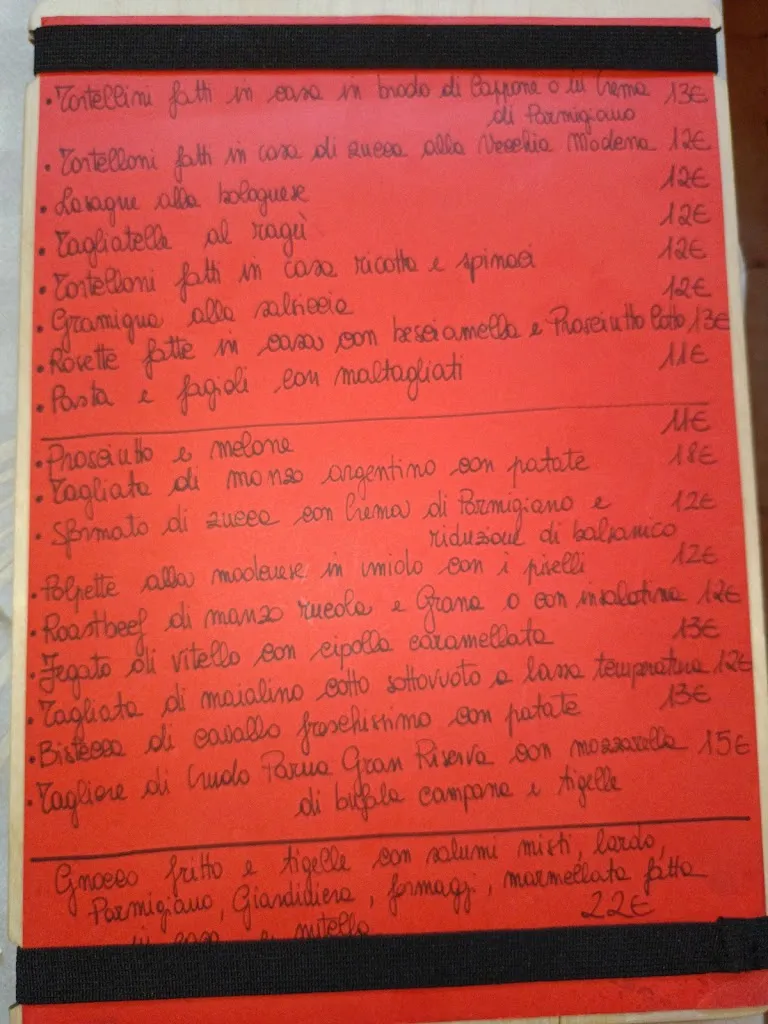 • Tortellini fatti in casa in brodo di Cappone o in Crema 13€
di Parmigiano
• Tortelloni fatti in casa di zucca alla Vecchia Modena 12€
• Lasagne alla bolognese 12€
• Tagliatelle al ragù 12€
• Tortelloni fatti in casa ricotta e spinaci 12€
• Gramigna alla salsiccia 12€
• Rosette fatte in casa con besciamella e Prosciutto Cotto 13€
• Pasta e fagioli con maltagliati 11€
• Prosciutto e melone 11€
• Tagliata di manzo argentino con patate 18€
• Sformato di zucca con Crema di Parmigiano e 12€
riduzione di balsamico
• Polpette alla modenese in umido con i piselli 12€
• Roastbeef di manzo rucola e Grana o con insalatina 12€
• Fegato di vitello con cipolla caramellata 13€
• Tagliata di maialino cotto sottovuoto a bassa temperatura 12€
• Bistecca di cavallo freschissimo con patate 13€
• Tagliere di Crudo Parma Gran Riserva con mozzarella 15€
di bufala campana e tigelle
Gnocco fritto e tigelle con salumi misti, lardo,
Parmigiano, Giardidiera, formaggi, marmellata fatta
in casa e nutella 22€